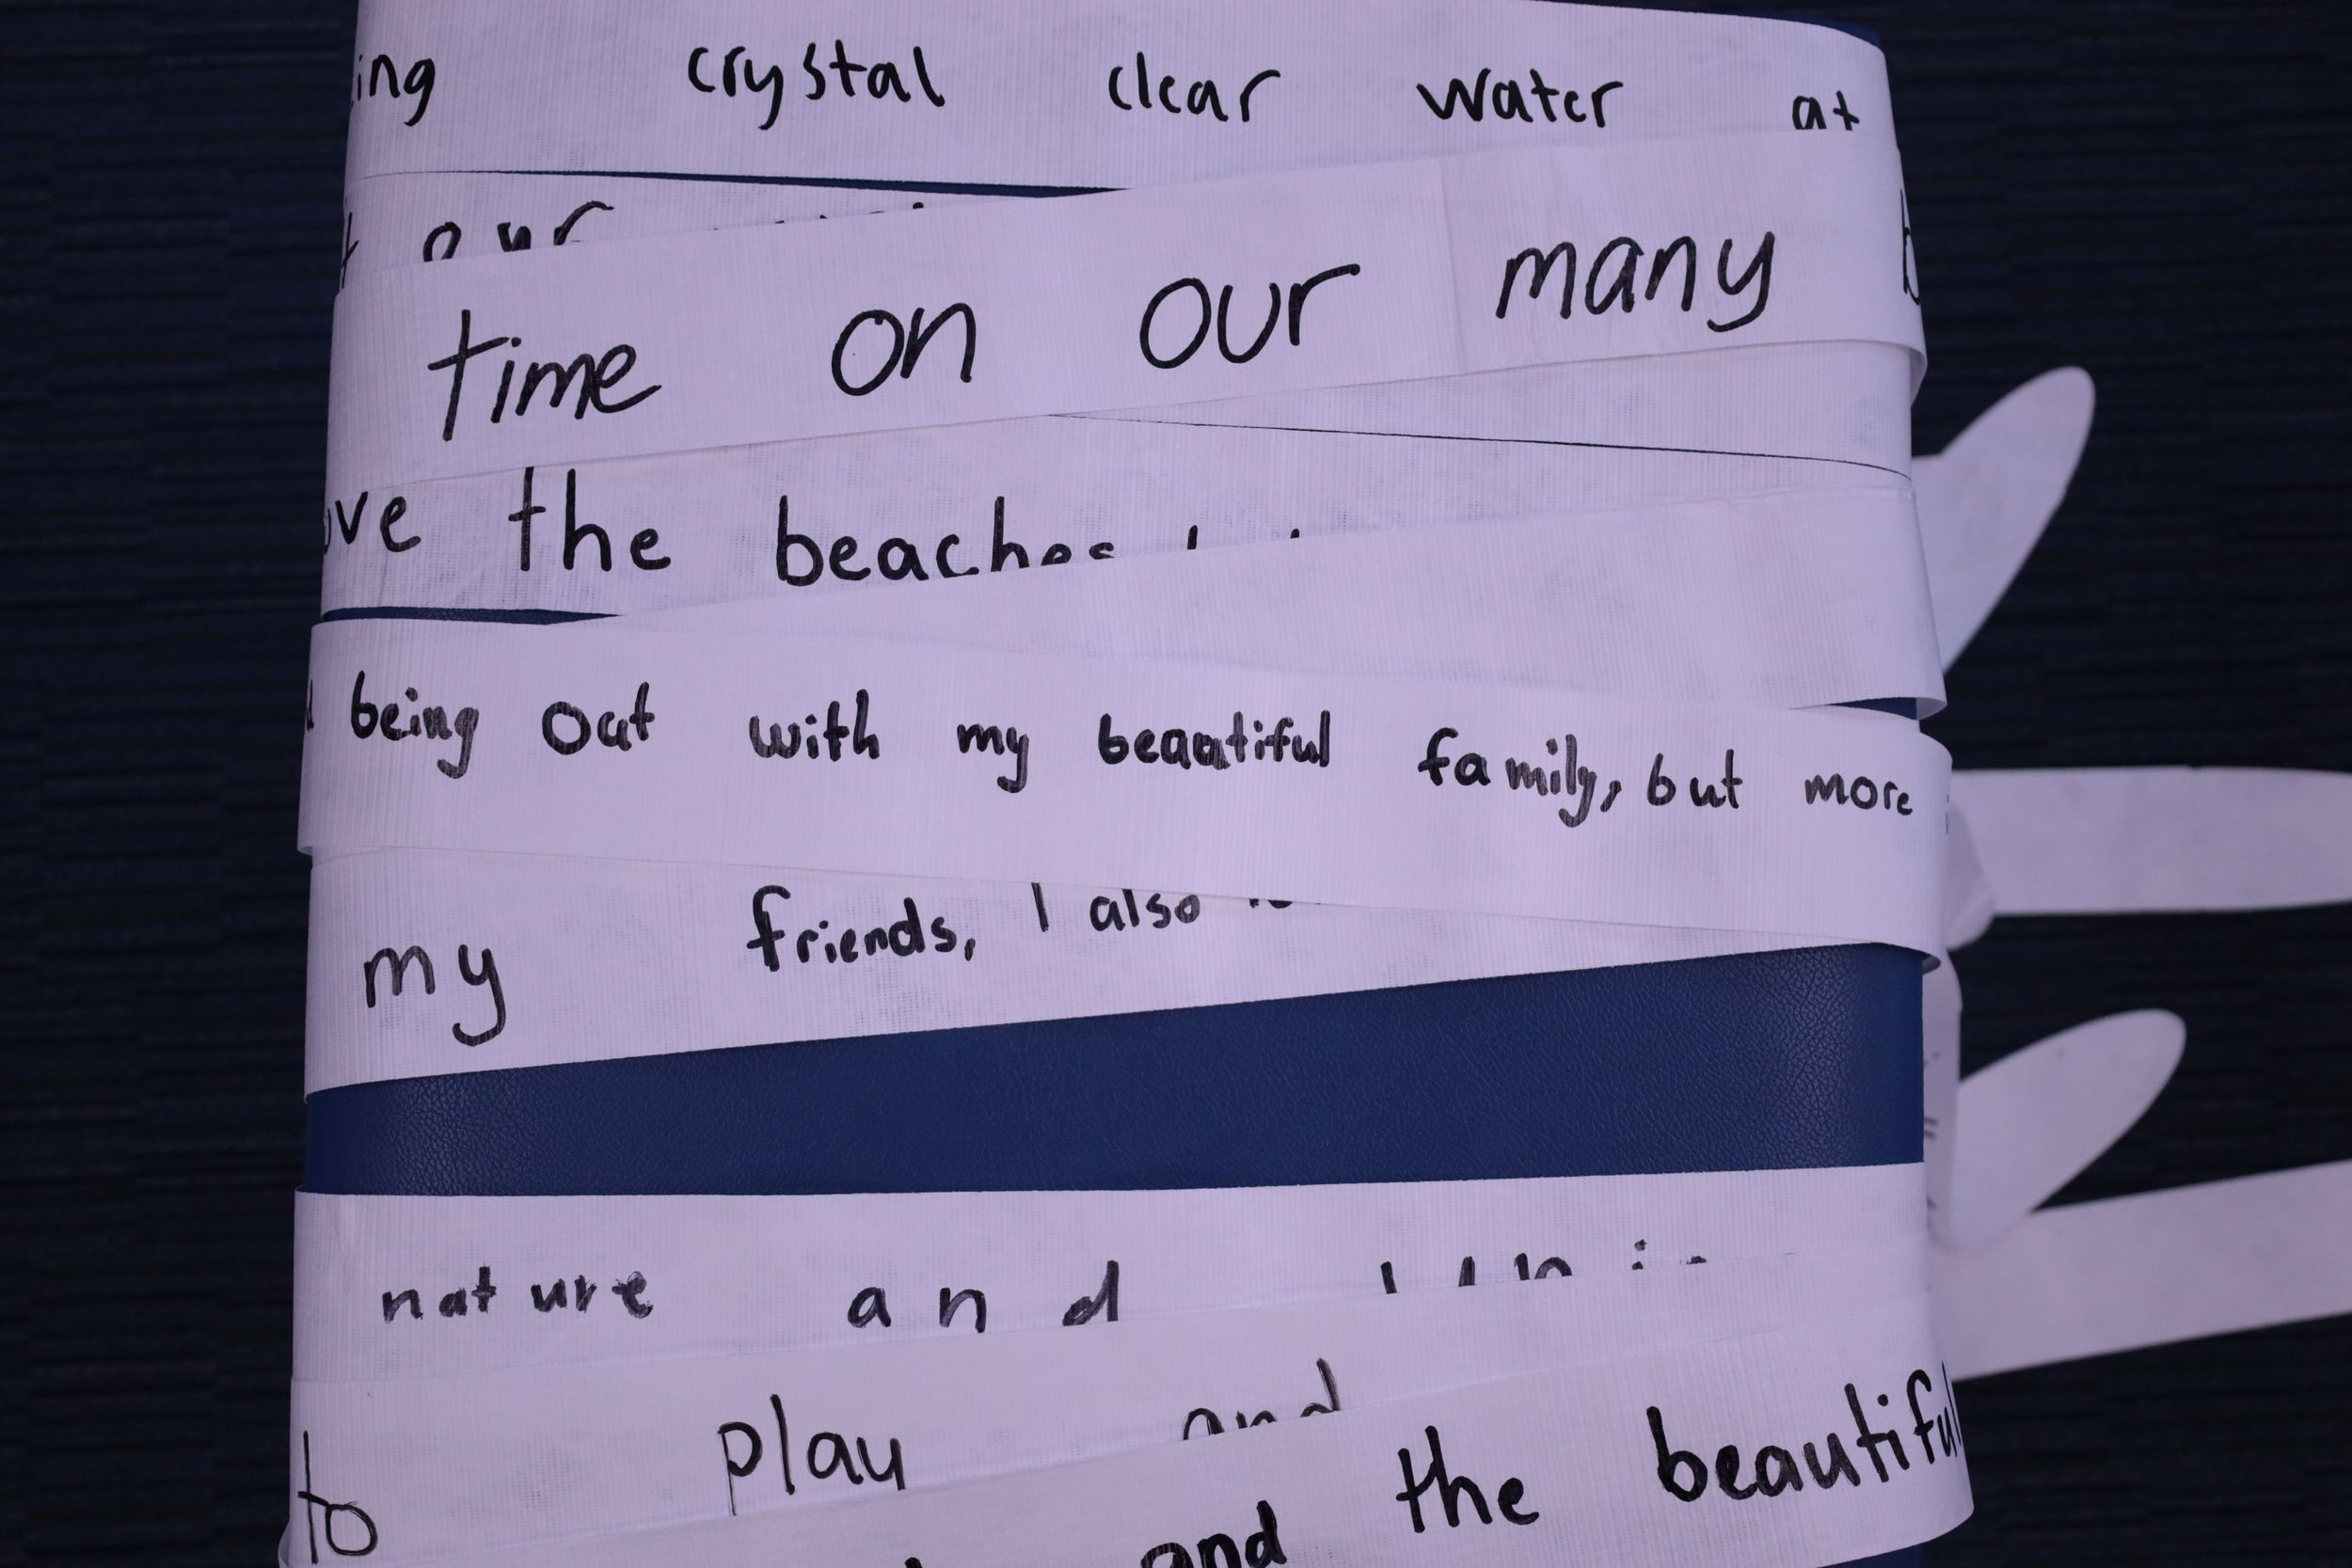 ing crystal clear water at
our
time on our many
ve the beaches
being out with my beautiful family, but more
my friends, I also
nature and
to play and
and the beautiful